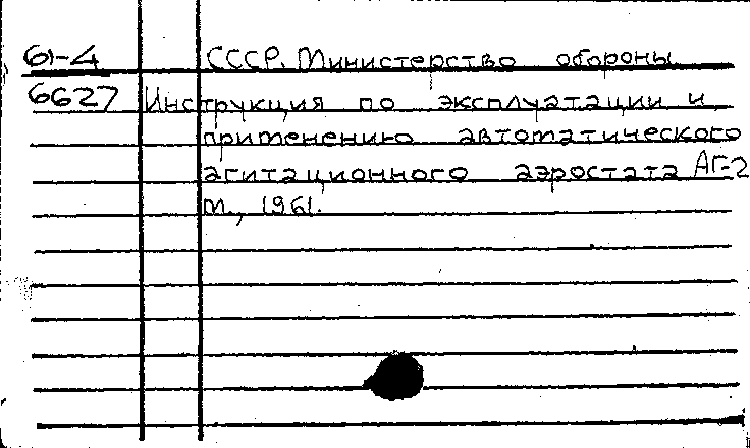 61-4 СССР. Министерство обороны
6627 Инструкция по эксплуатации и
применению автоматического
агитационного аэростата АГ-2
М., 1961.